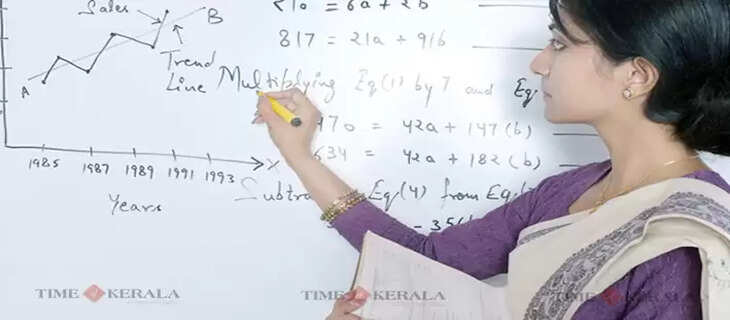 Sales
B
Trend
Line
A
1985 1987 1989 1991 1993 X
Years
= 6a + 2b
817 = 21a + 91b
Multiplying Eq(1) by 7 and Eq
470 = 42a + 147(b)
634 = 42a + 182(b)
Eq(4) from Eq
- 35(b
TIME KERALA TIME KERALA TIME KERALA